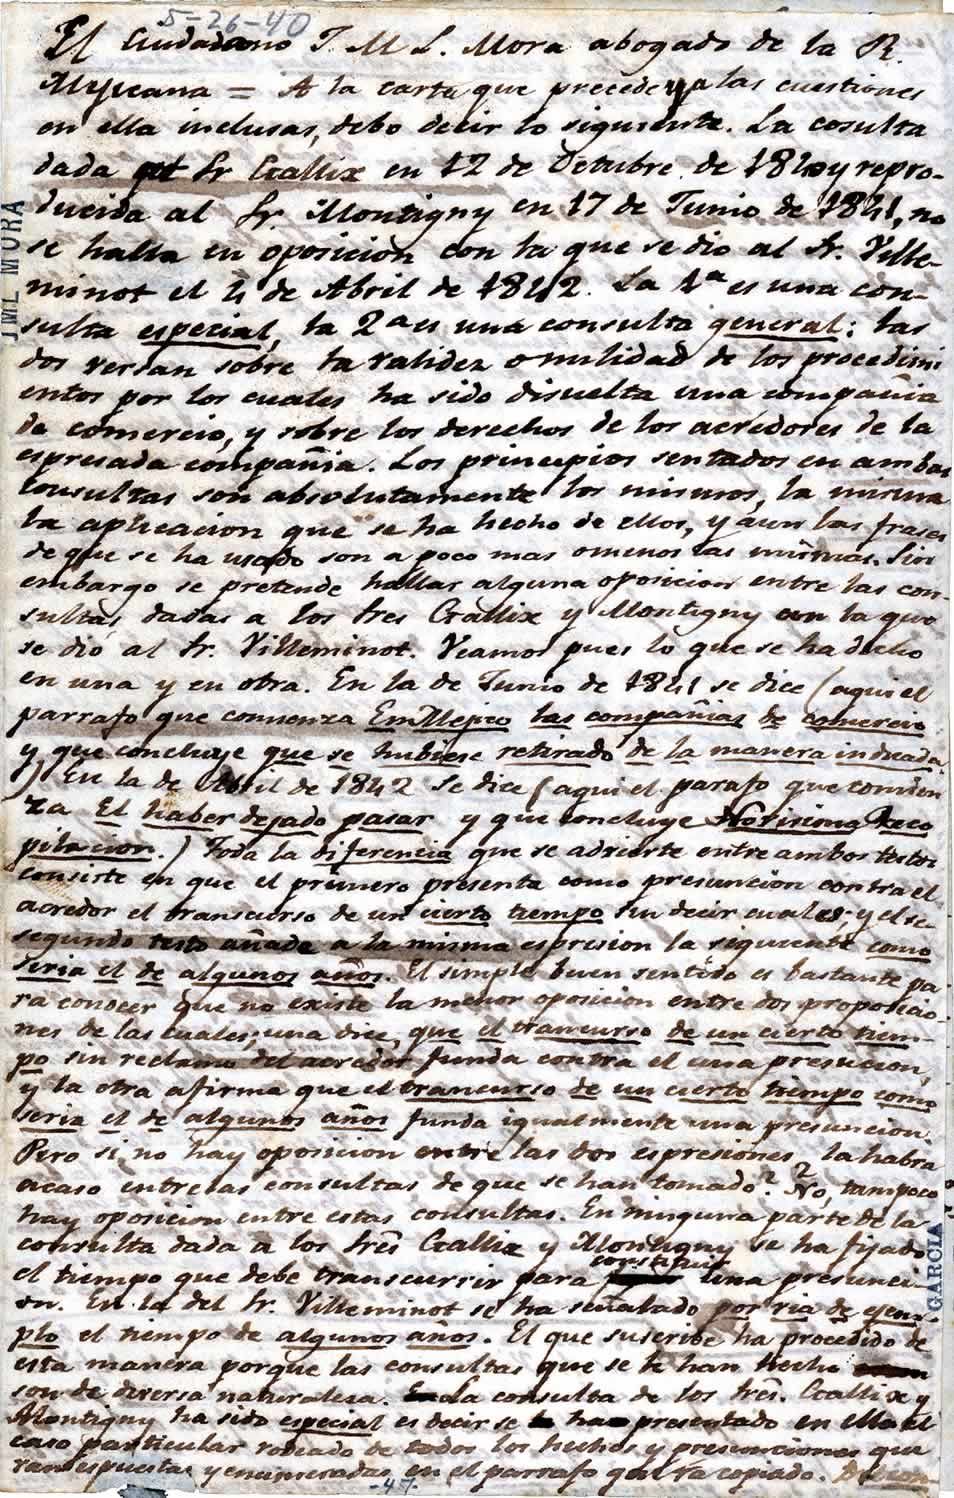 5-26-40
El Ciudadano J. M L. Mora abogado de la R.
Mejicana = A la carta que precede y a las cuestiones
en ella inclusas, debo decir lo siguiente. La cosulta
dada Sr Gallix en 12 de Octubre de 1840 y repro-
ducida al Sr. Montigny en 17 de Junio de 1841, no
se halla en oposicion con la que se dio al Sr. Ville-
minot el 4 de Abril de 1842. La 1ª es una con-
sulta especial, la 2ª es una consulta general: las
dos versan sobre la validez o nulidad de los procedimi
entos por los cuales ha sido disuelta una compañia
de comercio, y sobre los derechos de los acredores de la
espresada compañia. Los principios sentados en ambas
consultas son absolutamente los mismos, la misma
la aplicacion que se ha hecho de ellos, y aun las frases
de que se ha usado son a poco mas o menos las mismas. Sin
embargo se pretende hallar alguna oposicion entre las con-
sultas dadas a los Sres Gallix y Montigny con la que
se dió al Sr. Villeminot. Veamos pues lo que se ha dicho
en una y en otra. En la de Junio de 1841 se dice (aqui el
parrafo que comienza En Mejico las compañias de comercio
y que concluye que se hubiese retirado de la manera indicada.
) En la de Abril de 1842 se dice (aqui el parafo que comien
za El haber dejado pasar y que concluye Novisima Reco
pilacion.) Toda la diferencia que se advierte entre ambos testos
consiste en que el primero presenta como presuncion contra el
acredor el transcurso de un cierto tiempo sin decir cual es; y el se-
segundo testo añade a la misma espresion la siguiente como
seria el de algunos años. El simple buen sentido es bastante pa-
ra conocer que no existe la menor oposicion entre dos proposicio-
nes de las cuales, una dice, que el trancurso de un cierto tiem-
po sin reclamo del acredor funda contra el una presucion,
y la otra afirma que el trancurso de un cierto tiempo como
seria el de algunos años funda igualmente una presuncion.
Pero si, no hay oposicion entre las dos espresiones, la habra
acaso entre las consultas de que se han tomado? No, tampoco
hay oposicion entre estas consultas. En ninguna parte de la
consulta dada a los Sres Gallix y Montigny se ha fijado
el tiempo que debe transcurrir para constituir una presunci-
on. En la del Sr. Villeminot se ha señalado por via de ejem-
plo el tiempo de algunos años. El que suscribe ha procedido de
esta manera porque las consultas que se le han hecho
son de diversa naturalesa. La consulta de los Sres. Gallix y
Montigny ha sido especial es decir se ha presentado en ella el
caso particular rodeado de todos los hechos y presunciones que
van espuestas y enumeradas en el parrafo que va copiado.
-47-
JML MORA
GARCIA